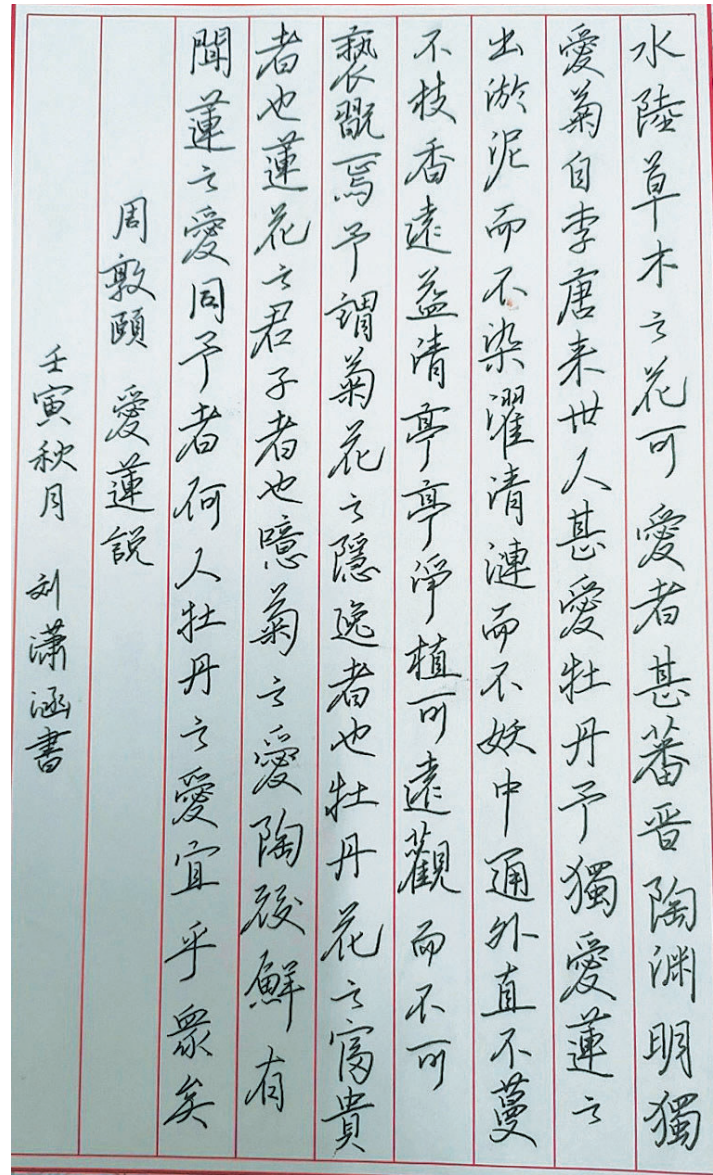 水陸草木之花可愛者甚蕃晋陶淵明獨
愛菊自李唐来世人甚愛牡丹予獨愛蓮之
出淤泥而不染濯清漣而不妖中通外直不蔓
不枝香遠益清亭亭淨植可遠觀而不可
褻翫焉予謂菊花之隱逸者也牡丹花之富貴
者也蓮花之君子者也噫菊之愛陶後鮮有
聞蓮之愛同予者何人牡丹之愛宜乎衆矣
周敦頤 愛蓮説
壬寅秋月 刘潇涵書